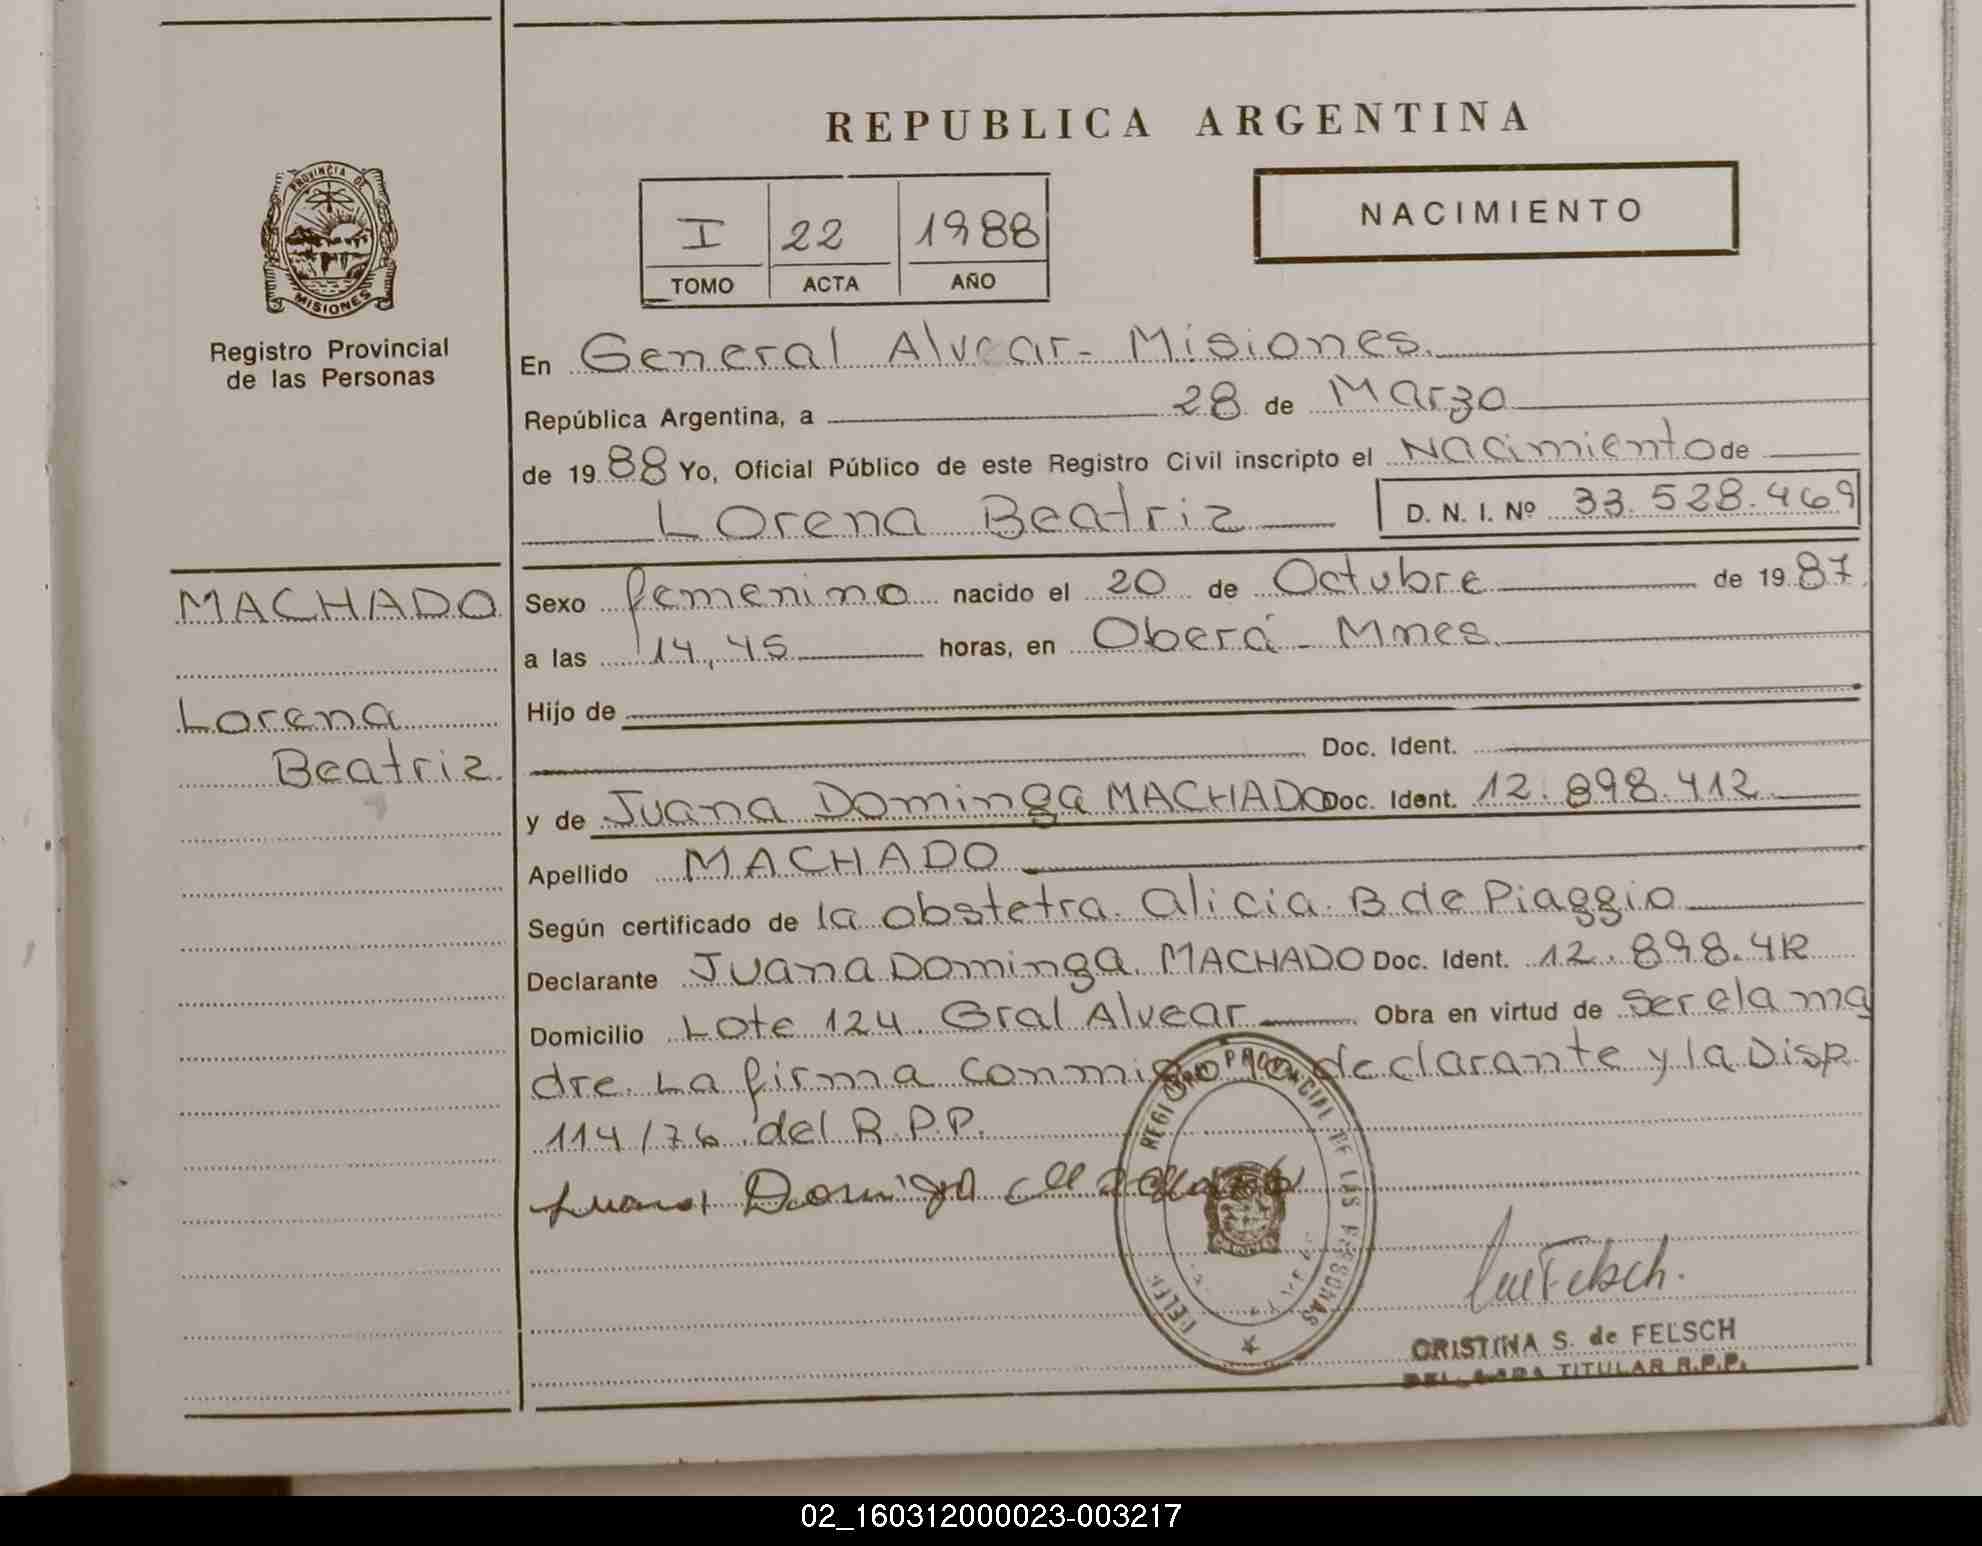 REPUBLICA ARGENTINA
PROVINCIA DE
MISIONES
Registro Provincial
de las Personas
I 22 1988
TOMO ACTA AÑO
NACIMIENTO
En General Alvear - Misiones.
República Argentina, a 28 de Marzo
de 1988 Yo, Oficial Público de este Registro Civil inscripto el Nacimiento de
Lorena Beatriz D. N. I. Nº 33.528.469
MACHADO
Lorena
Beatriz.
Sexo femenino nacido el 20 de Octubre de 1987.
a las 14,45 horas, en Oberá - Mnes.
Hijo de
Doc. Ident.
y de Juana Dominga MACHADO Doc. Ident. 12.898.412
Apellido MACHADO
Según certificado de la obstetra Alicia B de Piaggio
Declarante Juana Dominga MACHADO Doc. Ident. 12.898.412
Domicilio Lote 124 Gral Alvear Obra en virtud de ser ela ma
dre. La firma conmigo la declarante y la Disp.
114/76 del R.P.P.
Juana Dominga Machado
REGISTRO PROVINCIAL DE LAS PERSONAS
Felsch.
CRISTINA S. de FELSCH
TITULAR R.P.P.
02_160312000023-003217